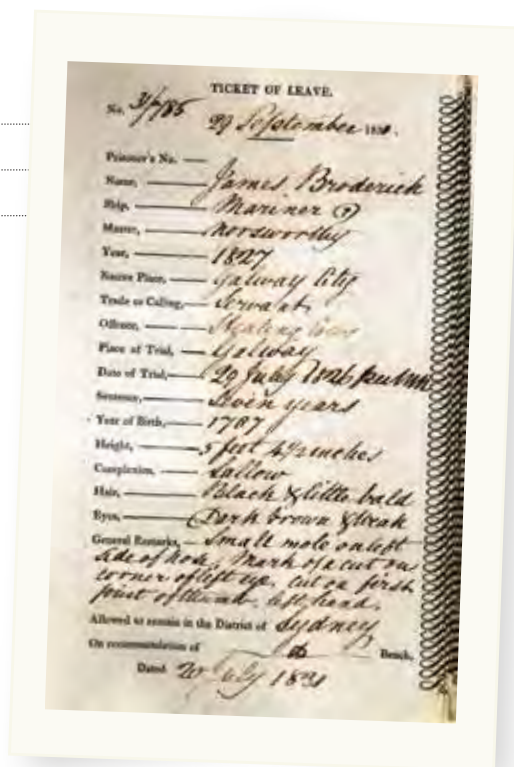 TICKET OF LEAVE.
No. 31/785
29 September 1831.
Prisoner's No. —
Name, — James Broderick
Ship, — Mariner
Master, — Norsworthy
Year, — 1827
Native Place, — Galway City
Trade or Calling, — Servant
Offence, — Stealing
Place of Trial, — Galway
Date of Trial, — 29 July 1826
Sentence, — Seven years
Year of Birth, — 1787
Height, — 5 feet 4½ inches
Complexion, — Sallow
Hair, — Black & little bald
Eyes, — Dark brown & weak
General Remarks, — Small mole on left
side of nose, Mark of a cut on
corner of left eye, cut on first
joint of thumb, left hand.
Allowed to remain in the District of Sydney
On recommendation of do Bench,
Dated July 1831